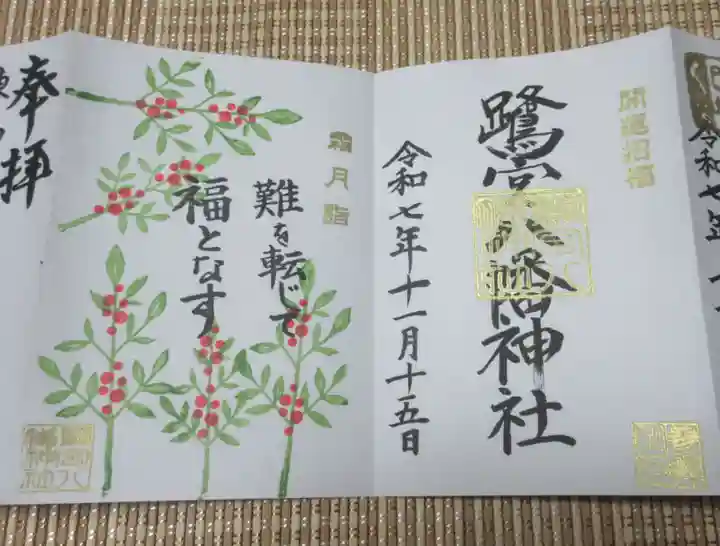 令和七年十
開運招福
鷺宮八幡神社
令和七年十一月十五日
霜月詣
難を転じて
福となす
奉拝